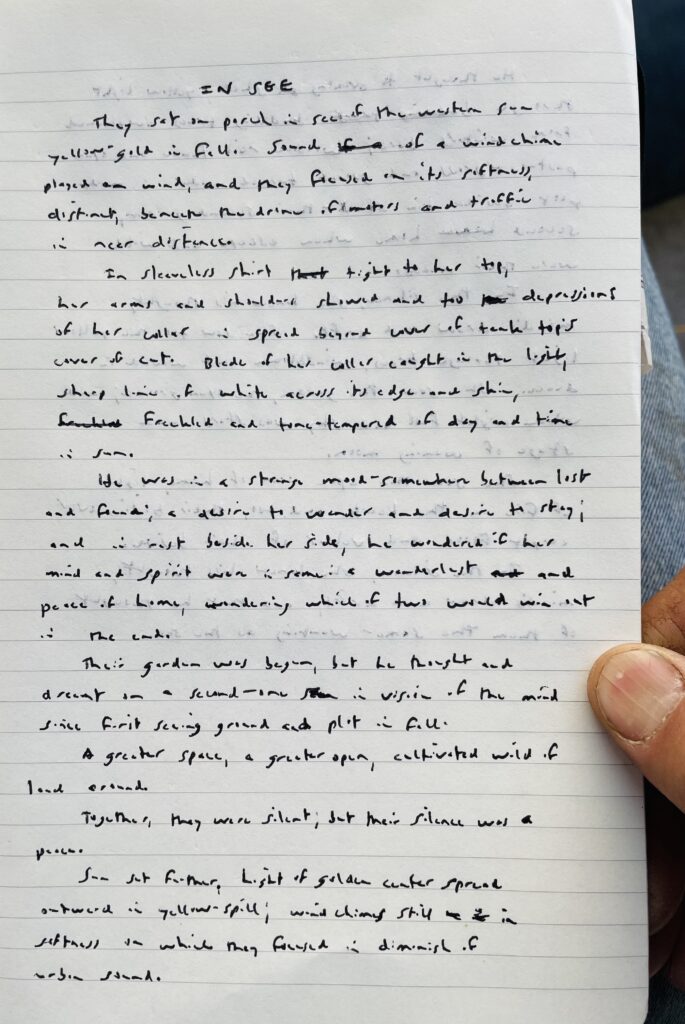 IN SEE
They sat on porch in see of the western sun
yellow-gold in fall. Sound of a windchime
played on wind, and they focused on its softness,
distinct, beneath the drone of motors and traffic
in near distance.
In sleeveless shirt tight to her top,
her arms and shoulders showed and too depressions
of her collar in spread beyond cover of tank top's
cover of cut. Blade of her collar caught in the light,
sharp line of white across its edge and skin,
freckled and tone-tempered of day and time
in sun.
He was in a strange mood-somewhere between lost
and found; a desire to wander and desire to stay;
and in rest beside her side, he wondered if her
mind and spirit were in same: a wanderlust and
peace of home, wondering which of two would win out
in the end.
Their garden was begun, but he thought and
dreamt on a second-one in vision of the mind
since first seeing ground and plot in fall.
A greater space, a greater open, cultivated wild of
land around.
Together, they were silent; but their silence was a
peace.
Sun set further, light of golden center spread
outward in yellow-spill; windchimes still in
softness on which they focused in diminish of
urban sound.